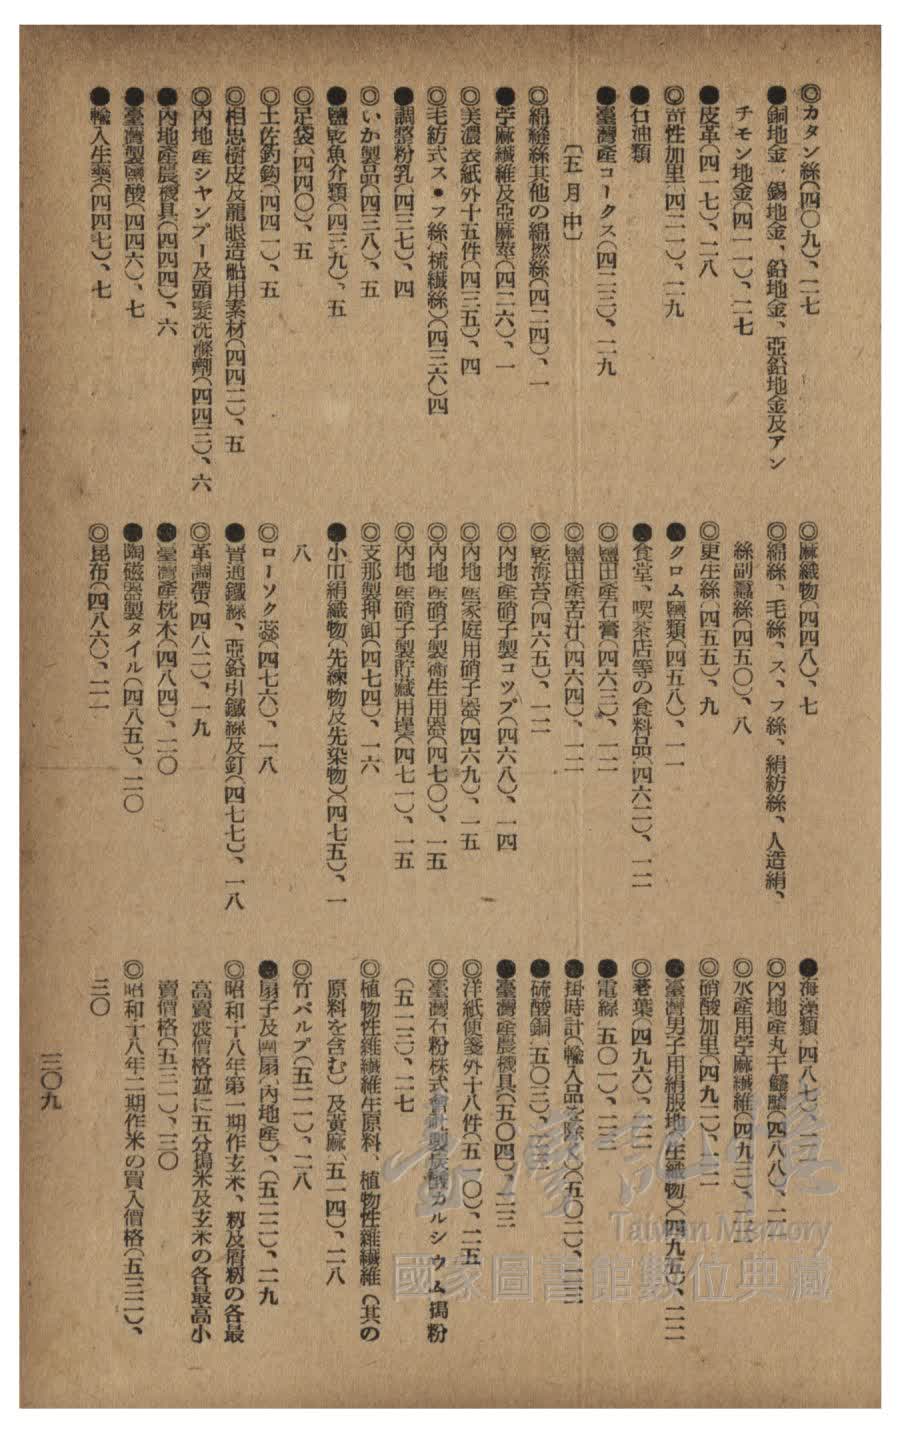 ◎カタン絲(四〇九)、二七
●銅地金、錫地金、鉛地金、亞鉛地金及アン
チモン地金(四一一)、二七
●皮革(四一七)、二八
◎苛性加里(四二一)、二九
●石油類
●臺灣產コークス(四二三)、二九
〔五月中〕
◎綿縫絲其他の綿撚絲(四二四)、一
●苧麻纖維及亞麻莖(四二六)、一
◎美濃表紙外十五件(四三五)、四
◎毛紡式ス・フ絲(梳纖絲)(四三六)四
●調整粉乳(四三七)、四
◎いか製品(四三八)、五
●鹽乾魚介類(四三九)、五
◎足袋(四四〇)、五
◎土佐釣鈎(四四一)、五
◎相思樹皮及龍眼造船用素材(四四二)、五
◎內地產シヤンプー及頭髮洗滌劑(四四三)、六
●內地產農機具(四四四)、六
●臺灣製鹽酸(四四六)、七
●輸入生藥(四四七)、七
◎麻織物(四四八)、七
◎綿絲、毛絲、ス、フ絲、絹紡絲、人造絹、
絲副蠶絲(四五〇)、八
◎更生絲(四五五)、九
●クロム鹽類(四五八)、一一
●食堂、喫茶店等の食料品(四六二)、一二
◎鹽田產石膏(四六三)、一二
◎鹽田產苦汁(四六四)、一二
◎乾海苔(四六五)、一二
◎內地產硝子製コツプ(四六八)、一四
◎內地產家庭用硝子器(四六九)、一五
◎內地產硝子製衞生用器(四七〇)、一五
◎內地產硝子製貯藏用壜(四七一)、一五
◎支那製押釦(四七四)、一六
●小巾絹織物(先練物及先染物)(四七五)、一
八
◎ローソク蕊(四七六)、一八
●普通鐵線、亞鉛引鐵線及釘(四七七)、一八
◎革調帶(四八二)、一九
●臺灣產枕木(四八四)、二〇
●陶磁器製タイル(四八五)、二〇
◎昆布(四八六)、二一
●海藻類(四八七)、二一
◎內地產丸干鱶鰭(四八八)、二一
◎水產用苧麻纖維(四九三)、二二
◎硝酸加里(四九二)、二二
●臺灣男子用絹服地(生織物)(四九五)、二二
◎荖葉(四九六)、二二
●電線(五〇一)、二三
●掛時計(輸入品を除く)(五〇二)、二三
●硫酸銅(五〇三)、二三
●臺灣產農機具(五〇四)、二三
◎洋紙便箋外十八件(五一〇)、二五
◎臺灣石粉株式會社製炭酸カルシウム搗粉
(五一三)、二七
◎植物性雜纖維生原料、植物性雜纖維(其の
原料を含む)及黃麻(五一四)、二八
◎竹パルプ(五二一)、二八
●扇子及團扇(內地產)、(五二二)、二九
◎昭和十八年第一期作玄米、籾及屑籾の各最
高賣渡價格竝に五分搗米及玄米の各最高小
賣價格(五三一)、三〇
◎昭和十八年二期作米の買入價格(五三二)、
三〇
三〇九
臺灣記憶
Taiwan Memory
國家圖書館數位典藏